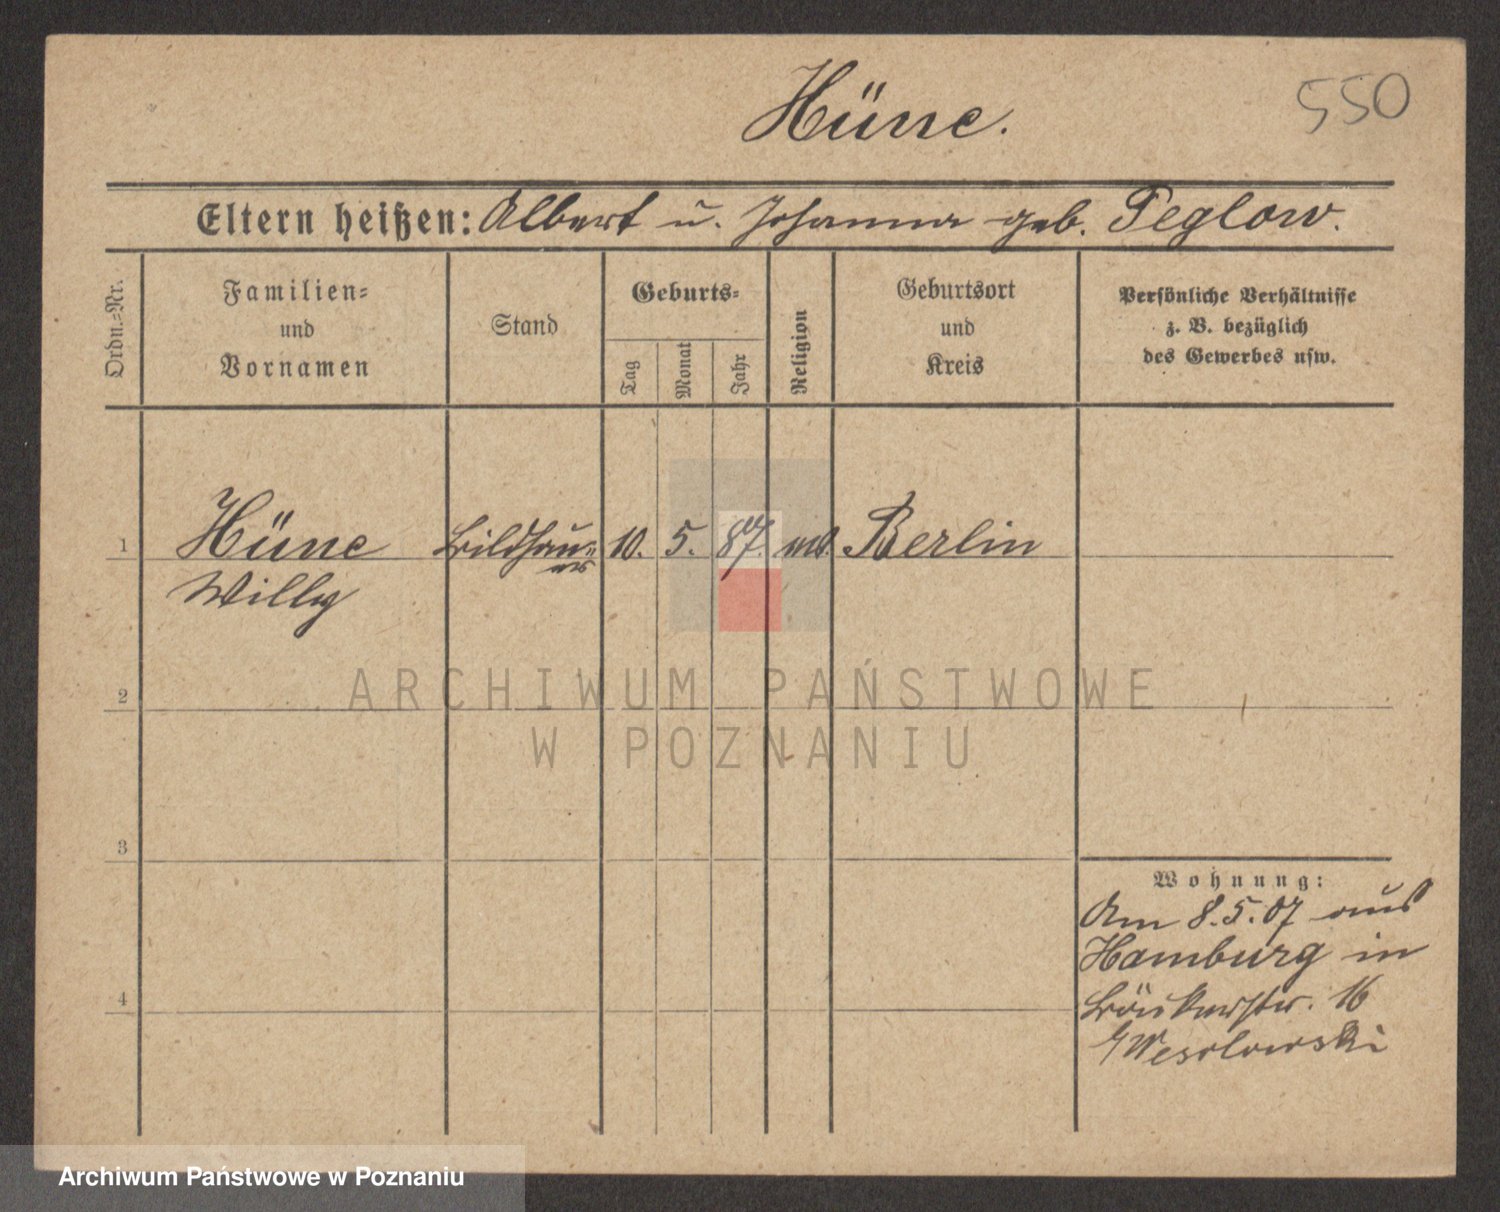 Hüne.
550
Eltern heißen: Albert u. Johanna geb. Peglow.
Ordn.=Nr.
Familien=
und
Vornamen
Stand
Geburts=
Tag
Monat
Jahr
Religion
Geburtsort
und
Kreis
Persönliche Verhältnisse
z. B. bezüglich
des Gewerbes usw.
1
Hüne Bildhau= 10. 5. 87. Berlin
Willy
2
ARCHIWUM PAŃSTWOWE
W POZNANIU
3
Wohnung:
Am 8.5.07 aus
Hamburg in
4
Bäckerstr. 16
Wesolowski
Archiwum Państwowe w Poznaniu